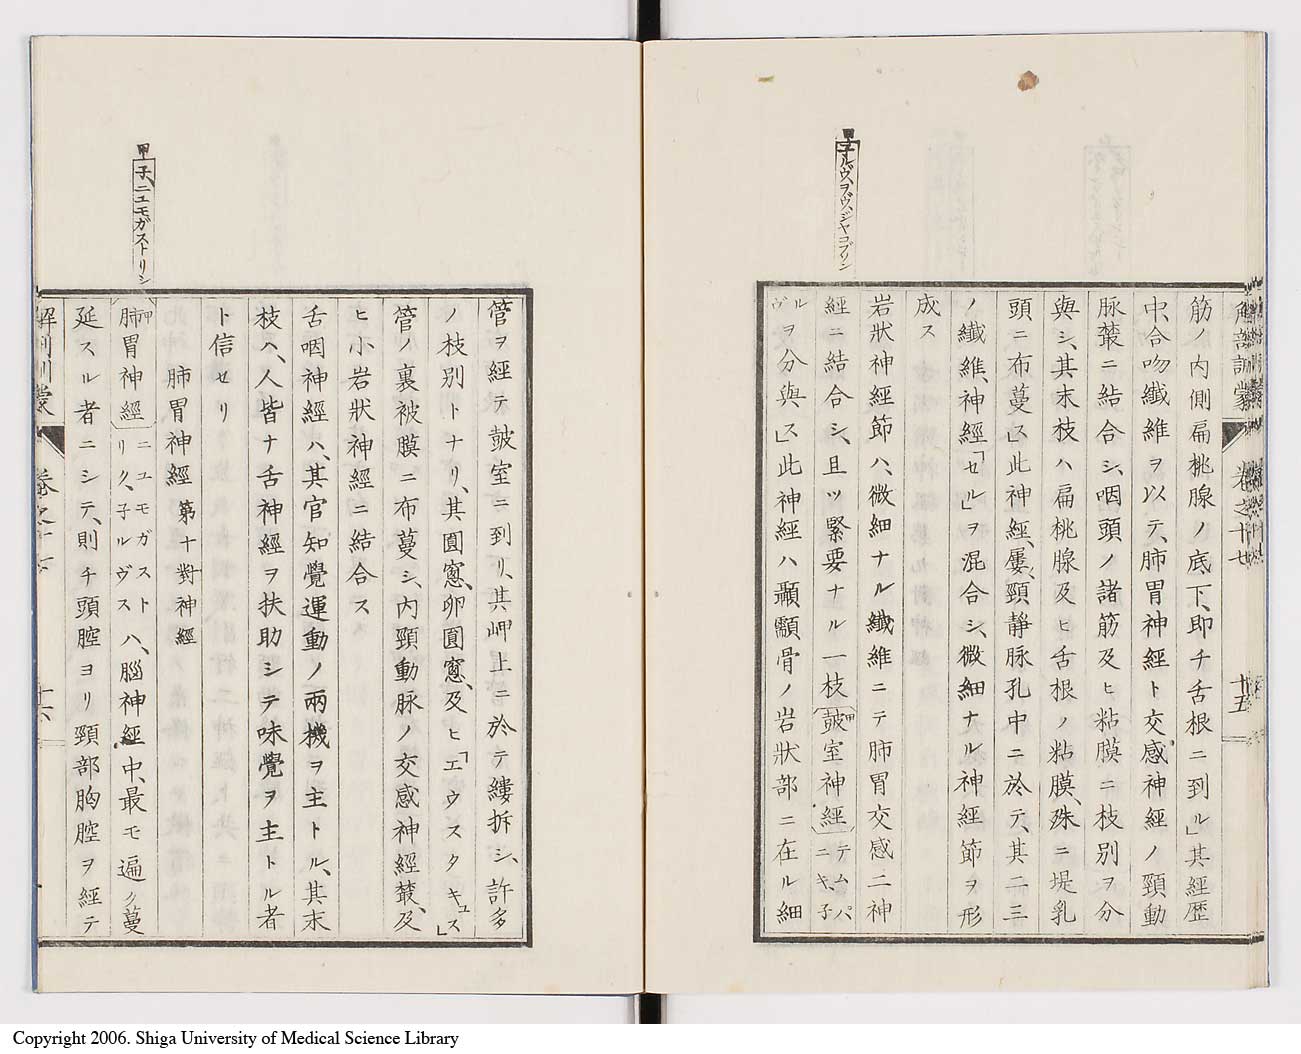 解剖訓蒙
卷之十七
十五
筋ノ内側扁桃腺ノ底下、即チ舌根ニ到ル」其經歷
中、合吻纖維ヲ以テ、肺胃神經ト交感神經ノ頸動
脉叢ニ結合シ、咽頭ノ諸筋及ヒ粘膜ニ枝別ヲ分
與シ、其末枝ハ扁桃腺及ヒ舌根ノ粘膜、殊ニ堤乳
頭ニ布蔓ス」此神經、屢〻頸静脉孔中ニ於テ、其二三
ノ纖維、神經「セル」ヲ混合シ、微細ナル神經節ヲ形
成ス
岩狀神經節ハ、微細ナル纖維ニテ肺胃交感二神
經ニ結合シ、且ツ緊要ナル一枝鼓室神經テムパニキ、子
ルヴヲ分與ス」此神經ハ顳顬骨ノ岩狀部ニ在ル細
甲子ルヴ、ヲヴ、ジヤコブソン
管ヲ經テ鼓室ニ到リ、其岬上ニ於テ縷拆シ、許多
ノ枝別トナリ、其圓窻、卵圓窻、及ヒ「エウスタキュス」
管ノ裏被膜ニ布蔓シ、内頸動脉ノ交感神經叢、及
ヒ小岩狀神經ニ結合ス
舌咽神經ハ、其官知覺運動ノ兩機ヲ主トル、其末
枝ハ、人皆ナ舌神經ヲ扶助シテ味覺ヲ主トル者
ト信セリ
肺胃神經 第十對神經
甲肺胃神經ニユモガストリク、子ルヴスハ、腦神經中、最モ遍ク蔓
延スル者ニシテ、則チ頭腔ヨリ頸部胸腔ヲ經テ
甲子、ニユモガストリシ
解剖訓蒙
卷之十七
十六